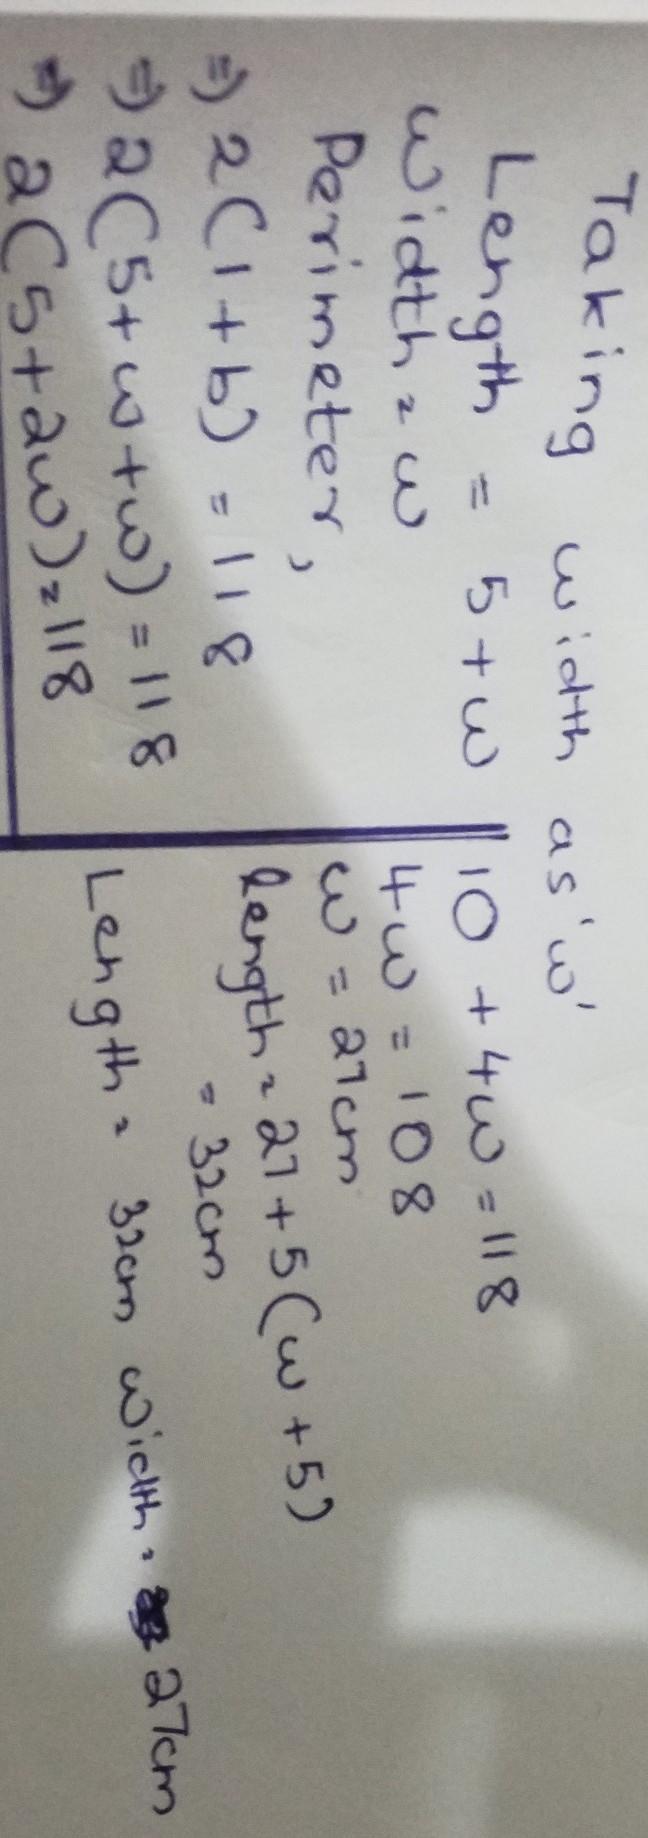 Taking width as 'w'
Length = 5 + w
Width = w
Perimeter,
⇒ 2(l + b) = 118
⇒ 2(5 + w + w) = 118
⇒ 2(5 + 2w) = 118
10 + 4w = 118
4w = 108
w = 27cm
length = 27 + 5 (w + 5)
= 32cm
Length = 32cm width = 27cm